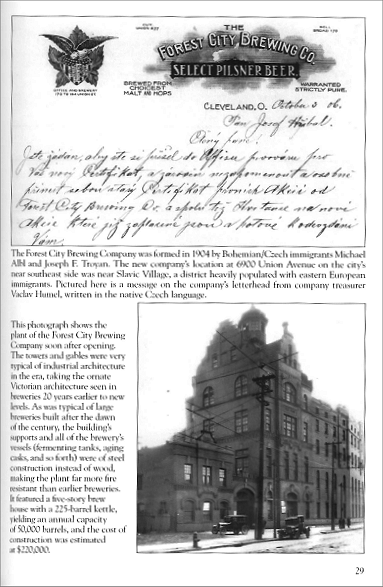 THE
FOREST CITY BREWING CO.
SELECT PILSNER BEER.
OFFICE AND BREWERY
BREWED FROM
CHOICEST
MALT AND HOPS
WARRANTED
STRICTLY PURE.
CLEVELAND, O. October 3 06.
Pan Josef Hubal.
Ctěný pane!
Jste žádán, aby ste si přišel do Office provám pro
Váš nový Certifikát, a zároveň nezapomenout a sebou
přinést sebou starý Certifikát prvních Akcií od
Forest City Brewing Co. a spolu tiž na nové
Akcie které již zaplacené jsou a hotové k odevzdání
Vám.
The Forest City Brewing Company was formed in 1904 by Bohemian/Czech immigrants Michael
Albl and Joseph F. Troyan. The new company's location at 6900 Union Avenue on the city's
near southeast side was near Slavic Village, a district heavily populated with eastern European
immigrants. Pictured here is a message on the company's letterhead from company treasurer
Vaclav Humel, written in the native Czech language.
This photograph shows the
plant of the Forest City Brewing
Company soon after opening.
The towers and gables were very
typical of industrial architecture
in the era, taking the ornate
Victorian architecture seen in
breweries 20 years earlier to new
levels. As was typical of large
breweries built after the dawn
of the century, the building's
supports and all of the brewery's
vessels (fermenting tanks, aging
casks, and so forth) were of steel
construction instead of wood,
making the plant far more fire
resistant than earlier breweries.
It featured a five-story brew
house with a 225-barrel kettle,
yielding an annual capacity
of 50,000 barrels, and the cost of
construction was estimated
at $220,000.
29